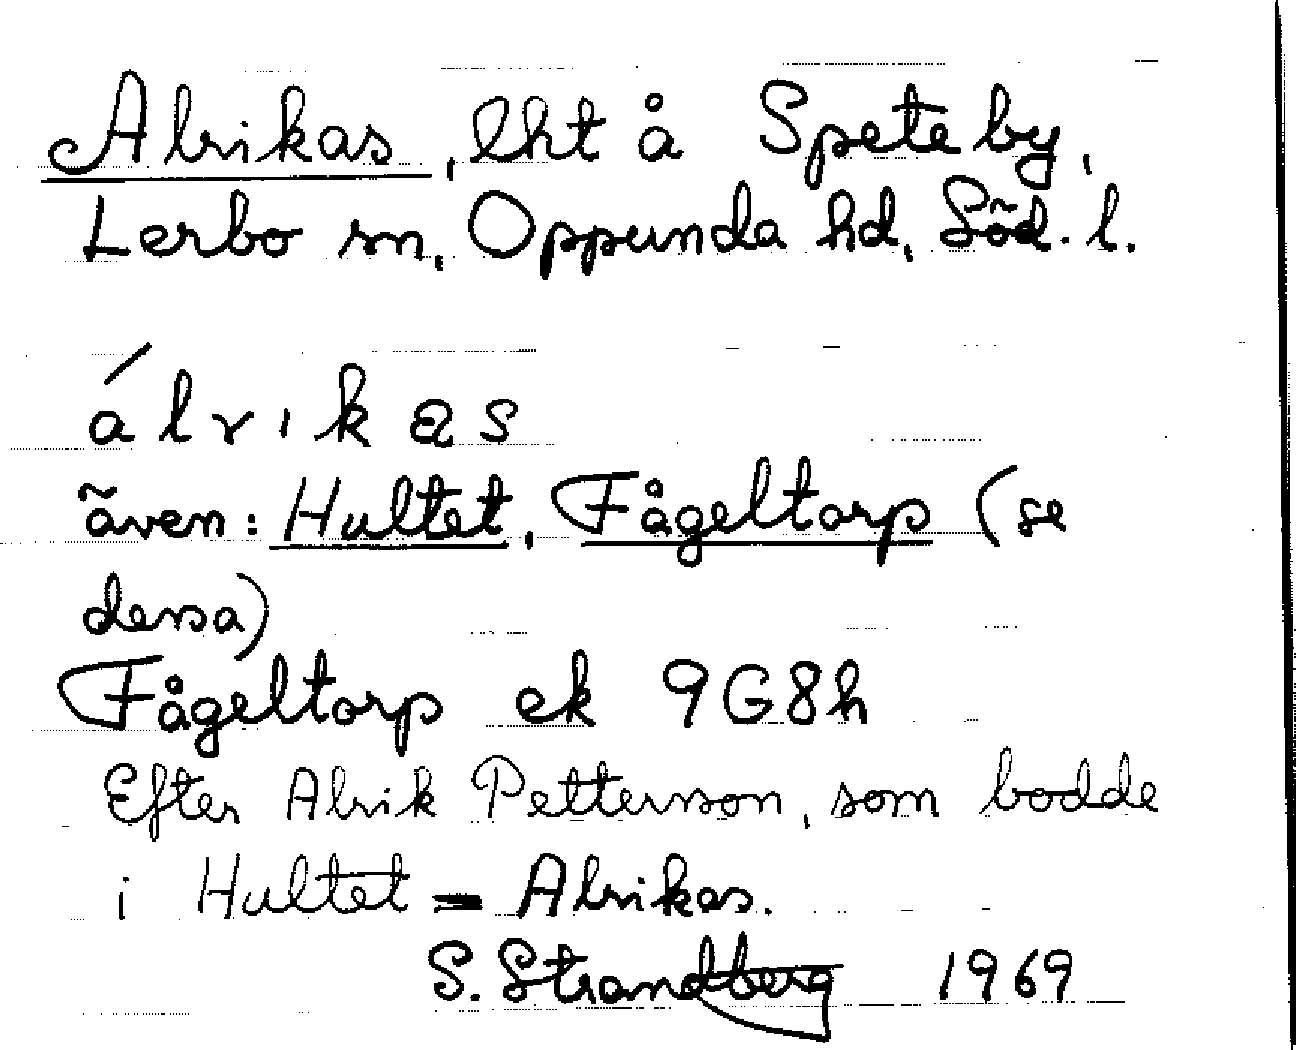 Alrikas, lht å Speteby,
Lerbo sn, Oppunda hd, Söd. l.
álrıkas
även: Hultet, Fågeltorp (se
dessa)
Fågeltorp ek 9G8h
Efter Alrik Petterson, som bodde
i Hultet = Alrikas.
S. Strandberg 1969